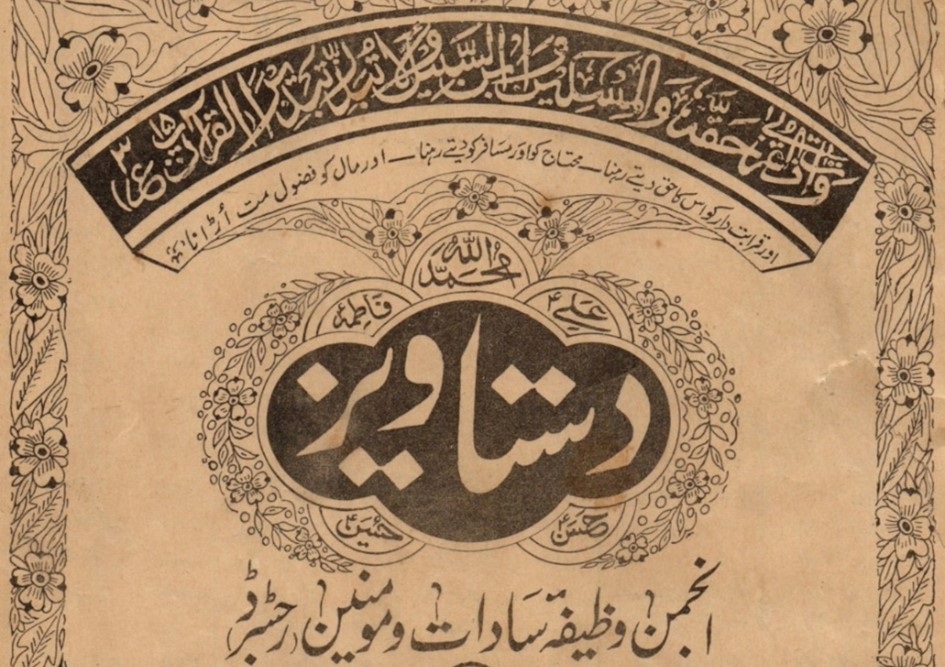 وَاٰتِ ذَاالْقُرْبٰی حَقَّہٗ وَالْمِسْکِیْنَ وَابْنَ السَّبِیْلِ وَلَا تُبَذِّرْ تَبْذِیْرًا القرآن پ ۱۵ ع ۳
اور قرابت دار کو اس کا حق دیتے رہنا ــ محتاج کو اور مسافر کو دیتے رہنا ــ اور مال کو فضول مت اُڑانا
اللہ
محمدؐ
علیؑ
فاطمہؑ
دستاویز
حسنؑ
حسینؑ
انجمن وظیفہ سادات و مومنین رجسٹرڈ